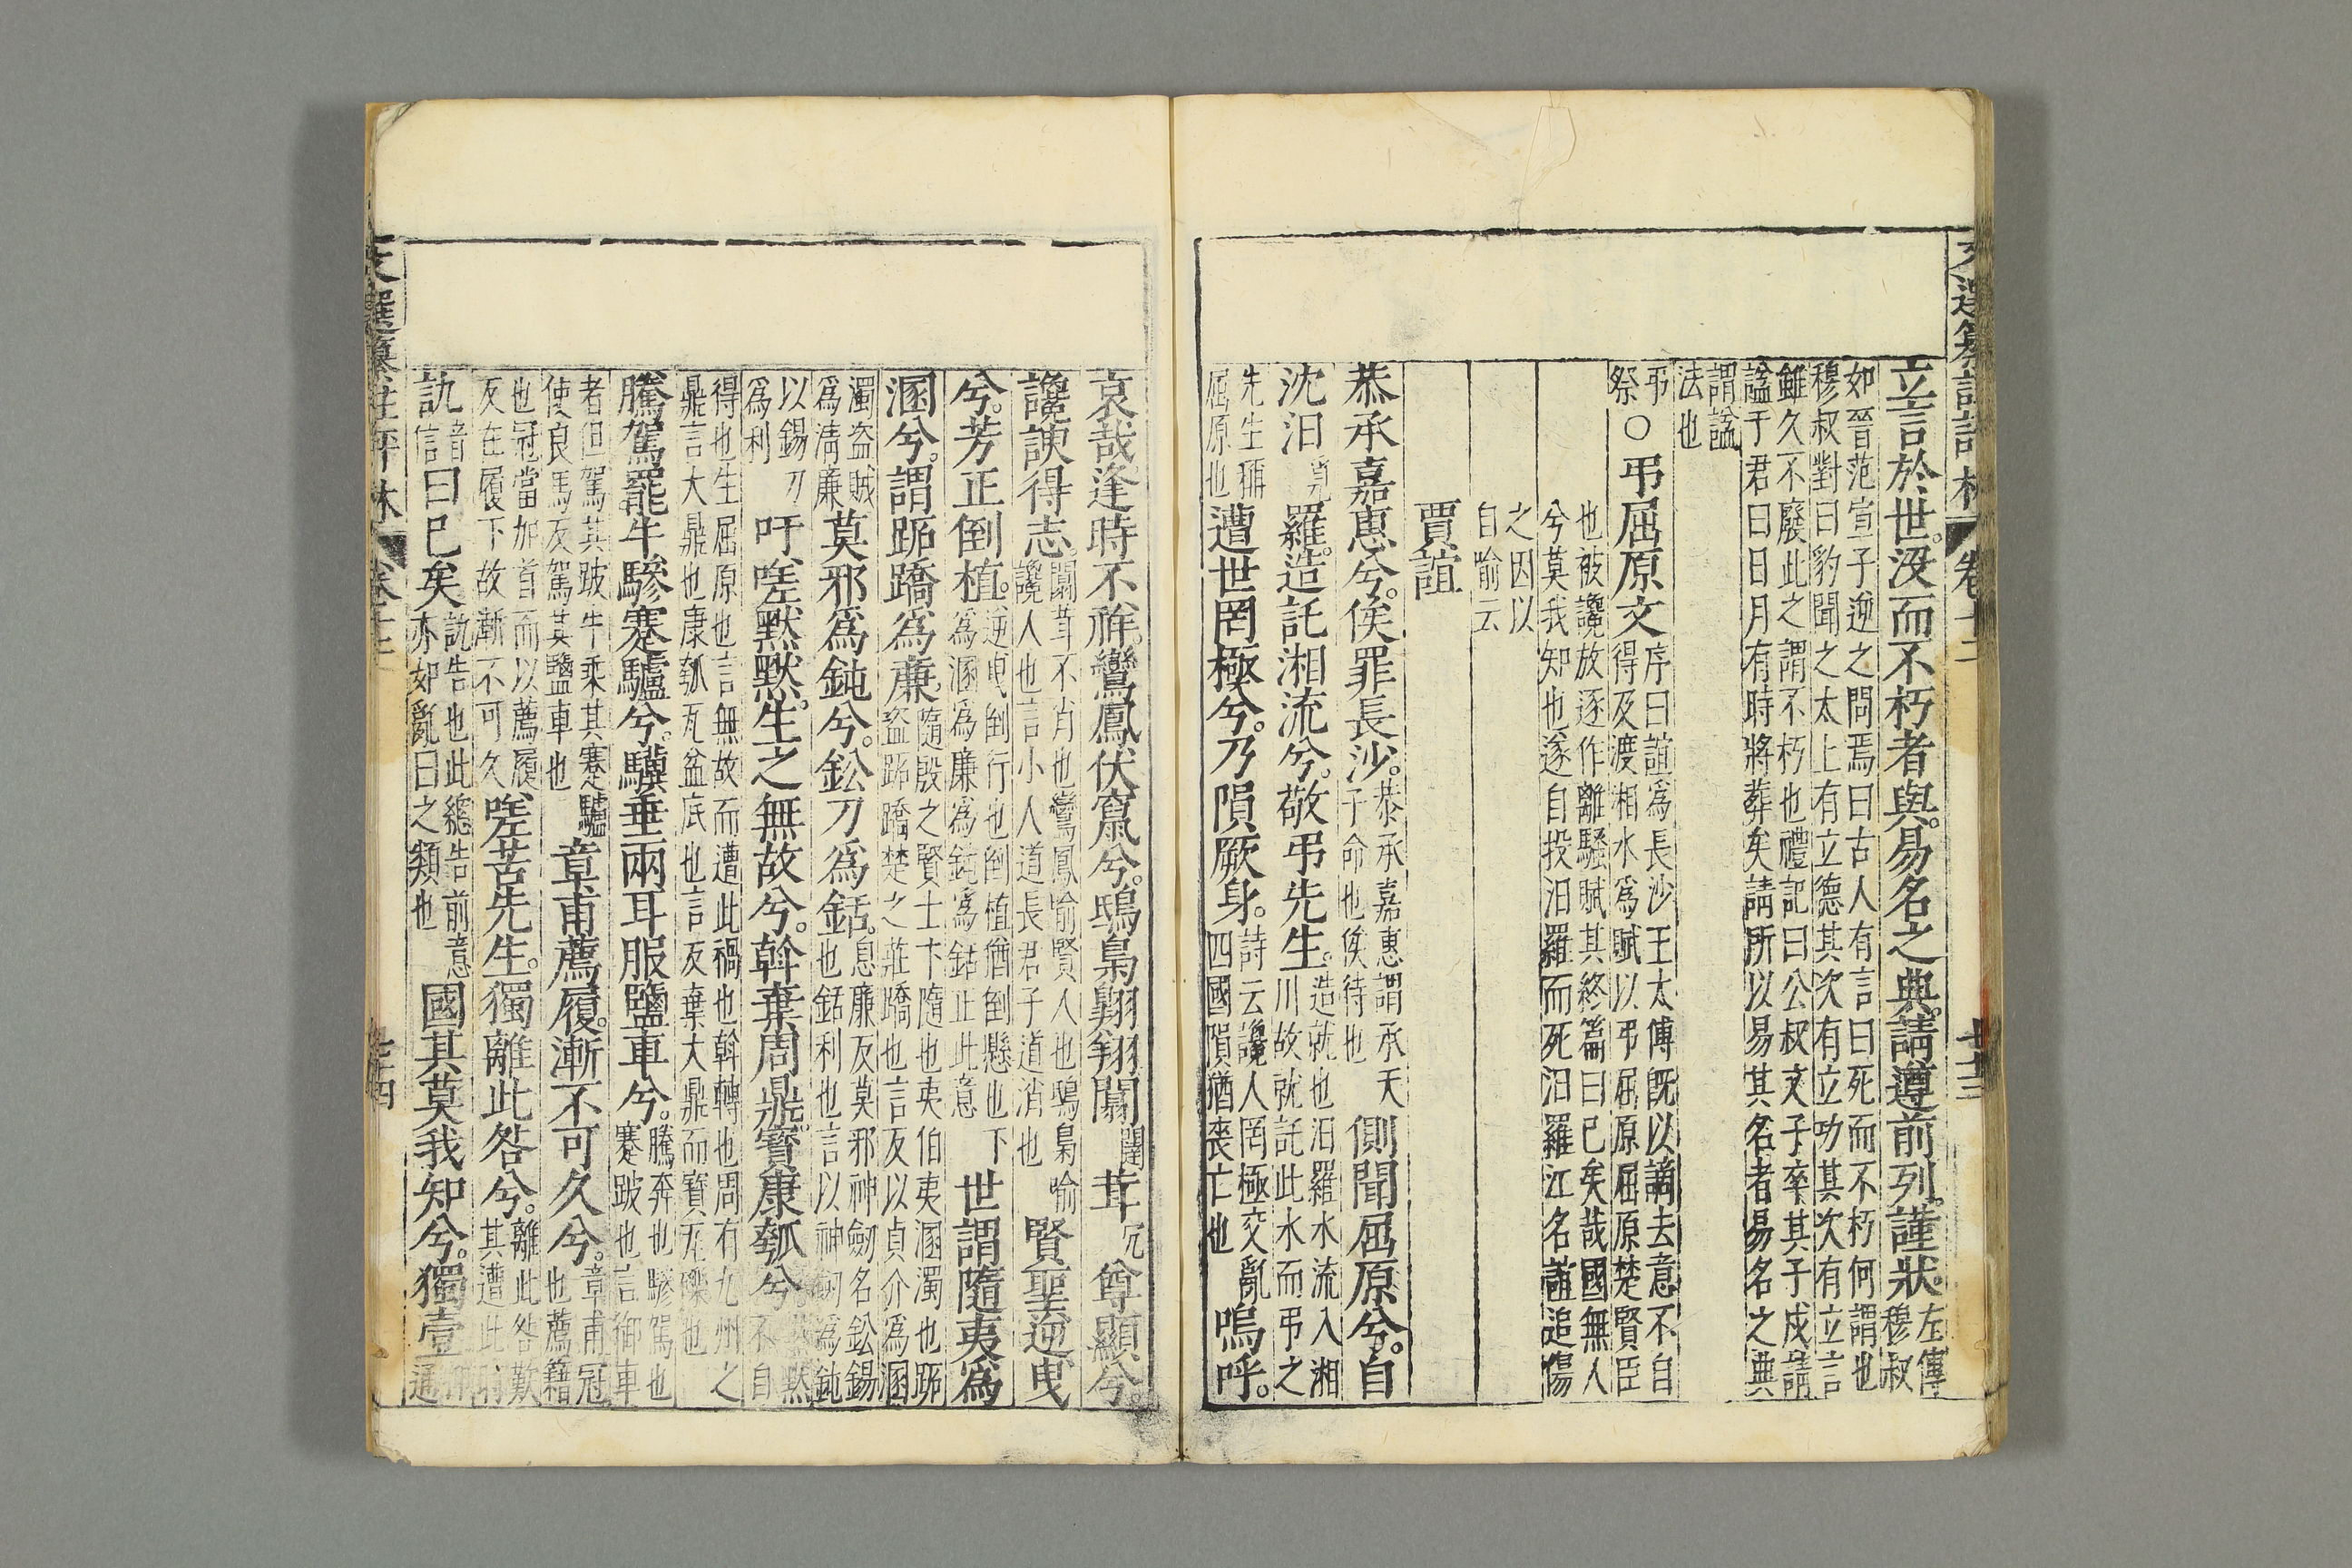 立言於世。沒而不朽者與。易名之典。請遵前列。謹狀。左傳
穆叔
如晉范宣子逆之問焉曰古人有言曰死而不朽何謂也
穆叔對曰豹聞之太上有立德其次有立功其次有立言
雖久不廢此之謂不朽也禮記曰公叔文子卒其子戍請
諡于君曰日月有時將葬矣請所以易其名者易名之典
謂諡
法也
弔
祭〇弔屈原文序曰誼為長沙王太傅既以謫去意不自
得及渡湘水為賦以弔屈原屈原楚賢臣
也被讒放逐作離騷賦其終篇曰已矣哉國無人
兮莫我知也遂自投汨羅而死汨羅江名誼追傷
之因以
自喻云
賈誼
恭承嘉惠兮。俟罪長沙。恭承嘉惠謂承天
子命也俟待也側聞屈原兮。自
沈汨覓羅。造託湘流兮。敬弔先生。造就也汨羅水流入湘
川故就託此水而弔之
先生稱
屈原也遭世罔極兮。乃隕厥身。詩云讒人罔極交亂
四國隕猶喪亡也嗚呼。
哀哉逢時不祥。鸞鳳伏竄兮。鴟梟翱翔闒闒茸冗尊顯兮。
讒諛得志。闒茸不肖也鸞鳳喻賢人也鴟梟喻
讒人也言小人道長君子道消也賢聖逆曳
兮。芳正倒植。逆曳倒行也倒植猶倒懸也下
為溷為廉為鈍為銛正此意世謂隨夷為
溷兮。謂跖蹻為廉。隨殷之賢士卞隨也夷伯夷溷濁也跖
盜跖蹻楚之莊蹻也言反以貞介為溷
濁盜賊
為淸廉莫邪為鈍兮。鈆刀為銛。息廉反莫邪神劒名鈆錫
也銛利也言以神劒為鈍
以錫刀
為利吁嗟默默。生之無故兮。斡棄周鼎。寶康瓠兮默默
不自
得也生屈原也言無故而遭此禍也斡轉也周有九州之
鼎言大鼎也康瓠瓦盆底也言反棄大鼎而寶瓦礫也
騰駕罷牛驂蹇驢兮。驥垂兩耳服鹽車兮。騰奔也驂駕也
蹇跛也言御車
者但駕其跛牛乘其蹇驢
使良馬反駕其鹽車也章甫薦履。漸不可久兮。章甫冠
也薦籍
也冠當加首而以薦履
反在履下故漸不可久嗟苦先生。獨離此咎兮。離此咎歎
其遭此
訊音
信曰已矣訊告也此總告前意
亦如亂曰之類也國其莫我知兮。獨壹
通
文選纂註評林 卷十二